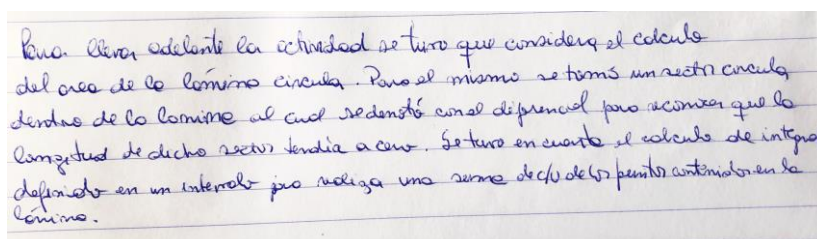 Para llevar adelante la actividad se tuvo que considerar el calculo
del area de la lámina circular. Para el mismo se tomó un sector circular
dentro de la lamina al cual se denotó con el diferencial para reconocer que la
longitud de dicho sector tendía a cero. Se tuvo en cuenta el calculo de integral
definida en un intervalo para realizar una suma de c/u de los puntos contenidos en la
lámina.